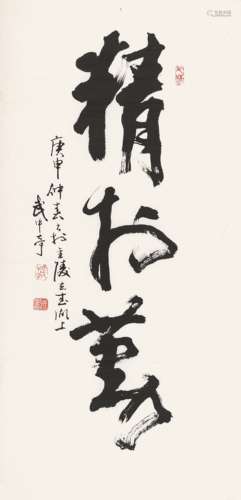 精於勤
庚申仲春之於金陵玄武湖上
武中奇